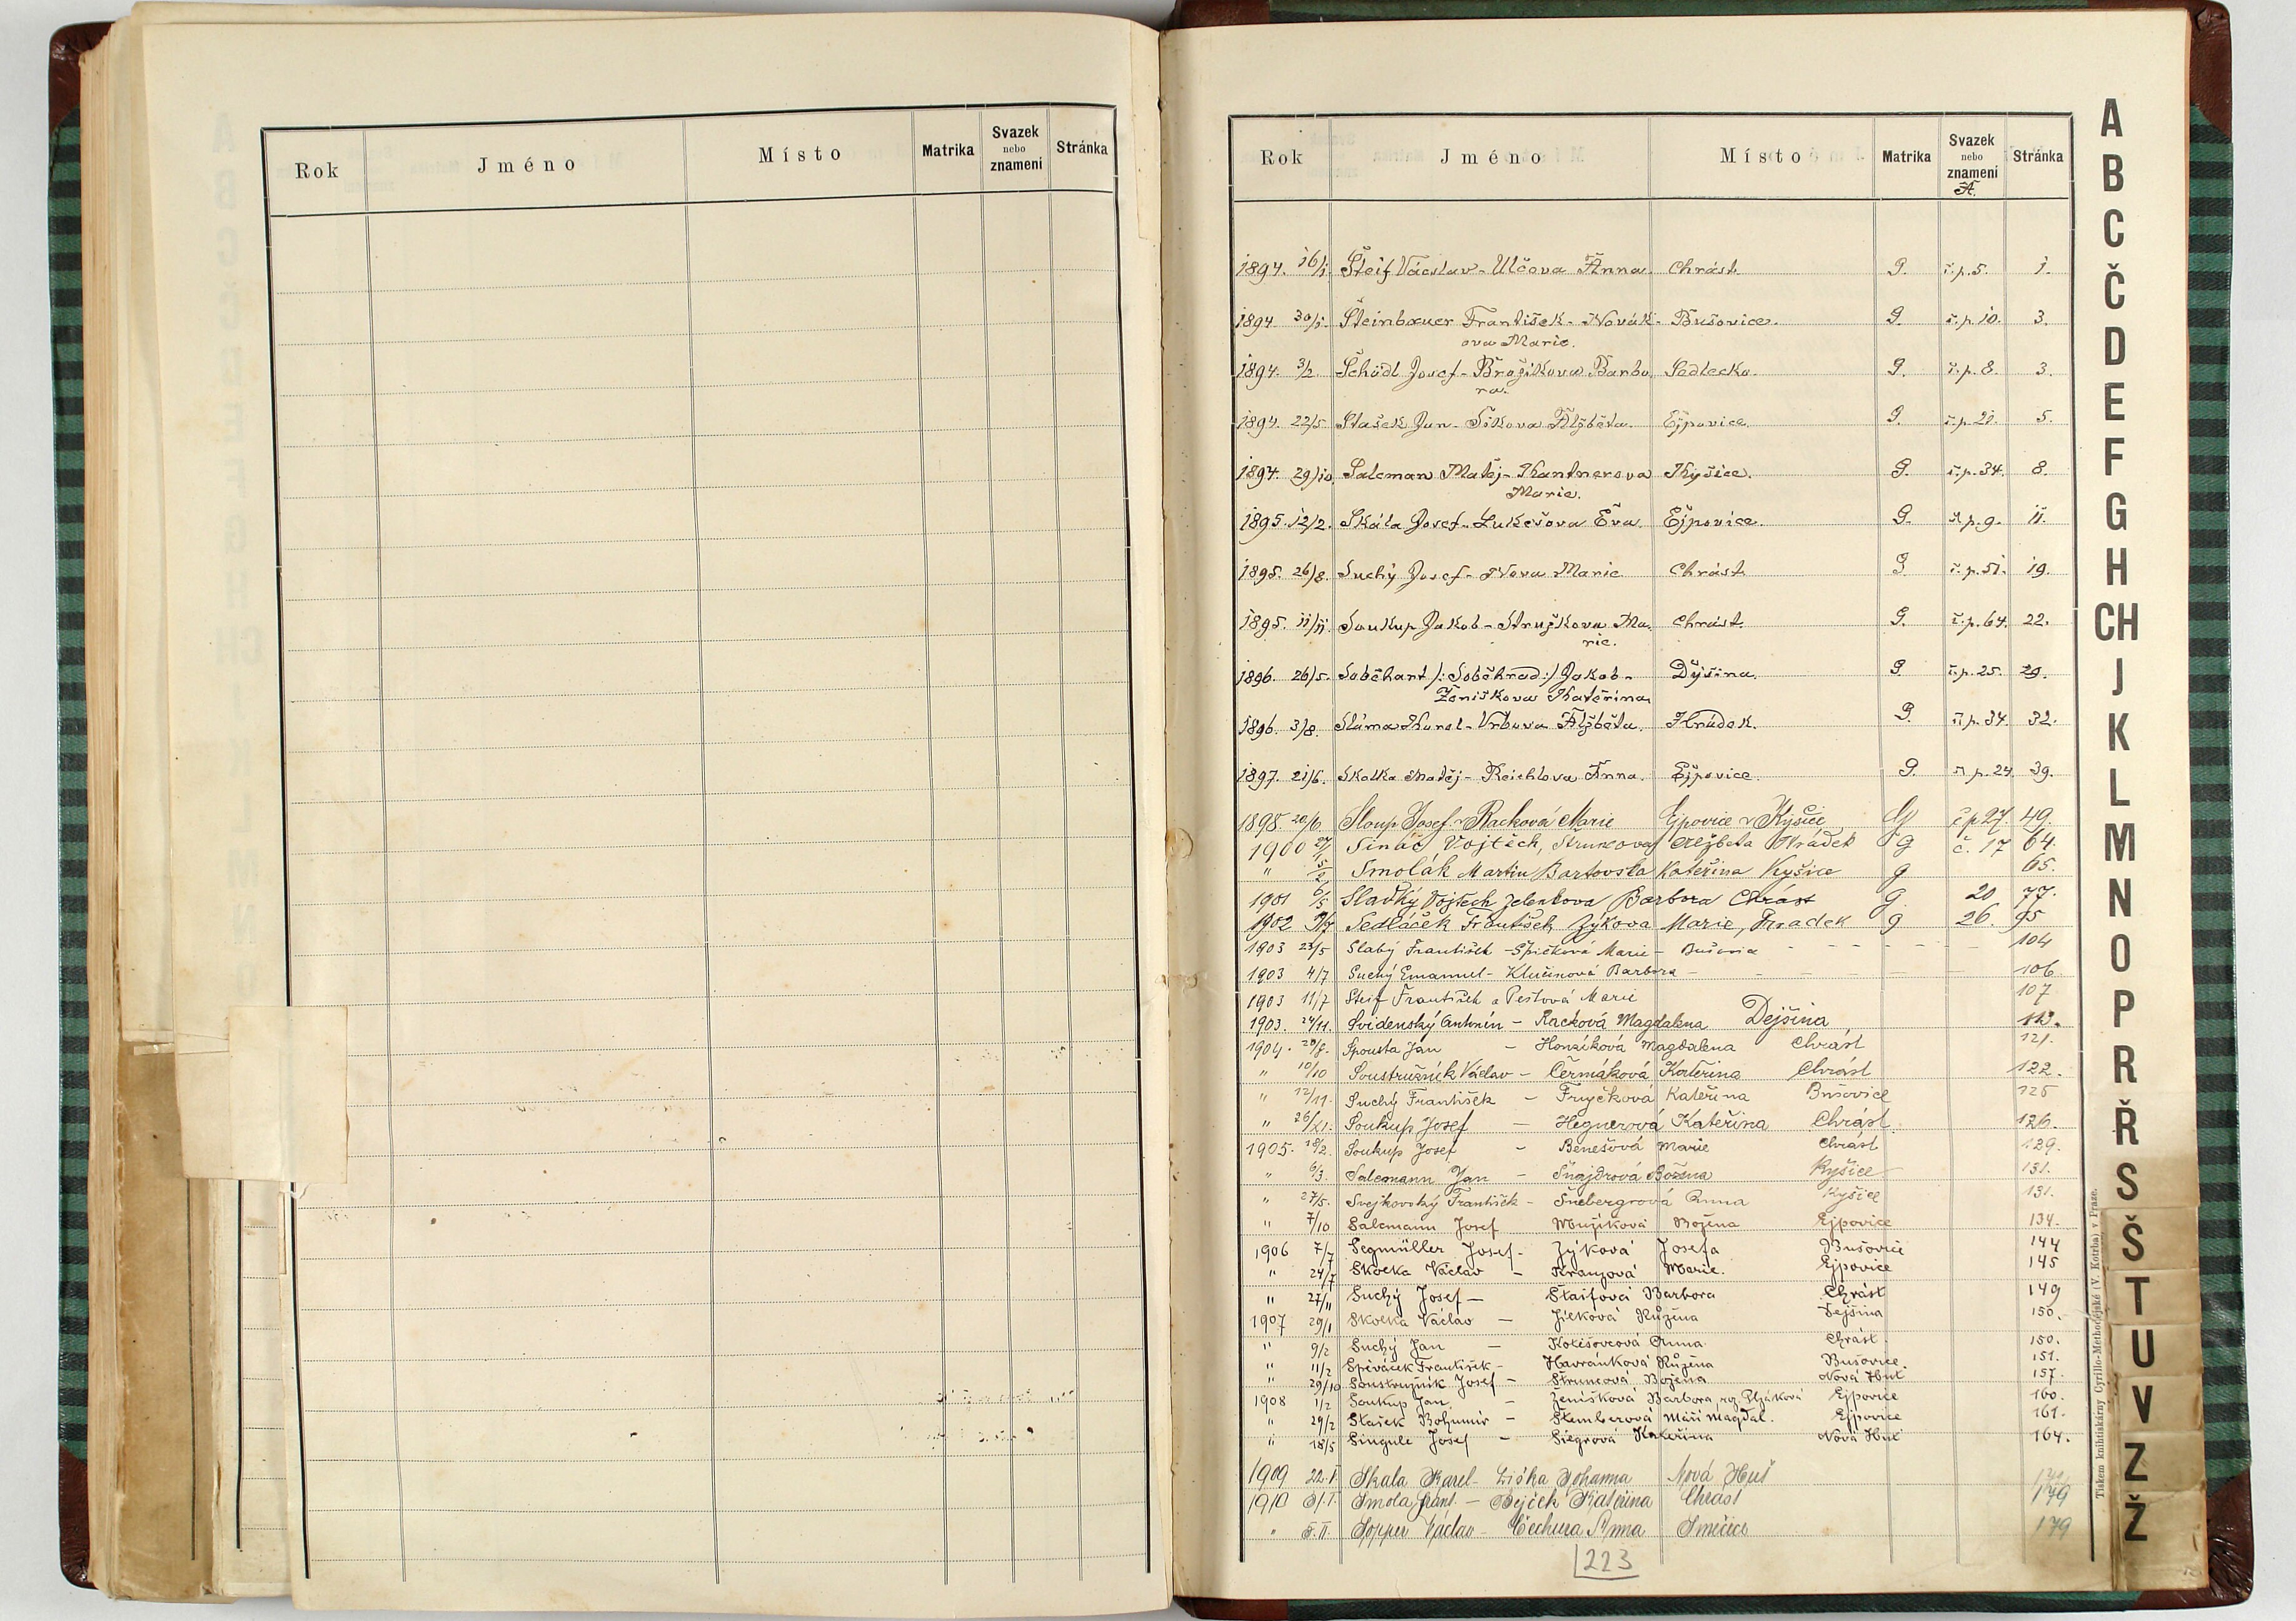 Rok Jméno Místo Matrika Svazek nebo znamení Stránka
Rok Jméno Místo Matrika Svazek nebo znamení Stránka
A.
1894. 16/1. Šteif Václav - Ulčova Anna Chrást. G. č.p.5. 1.
1894 30/1. Šteinbauer František - Novák- Bušovice. G. č.p.10. 3.
ova Marie.
1894. 3/2. Schödl Josef - Brožikova Barbo Sedlecko. G. č.p.8. 3.
ra.
1894. 22/5. Stašek Jan - Šikova Alžběta. Ejpovice. G. č.p.21. 5.
1894. 29/10. Salcman Matěj - Kantnerova Kyšice. G. č.p.34. 8.
Marie.
1895. 12/2. Skála Josef - Lukešova Eva. Ejpovice. G. č.p.9. 11.
1895. 26/8. Suchý Josef - Nova Marie Chrást. G. č.p.51. 19.
1895. 11/11 Soukup Jakob - Stružkova Ma- Chrást. G. č.p.64. 22.
rie.
1896. 26/5. Soběhart /:Soběhrad:/ Jakob - Dýšina. G. č.p.25. 29.
Ženiškova Kateřina
1896. 3/8. Sláma Karel - Vrbova Alžběta. Hrádek. G. č.p.34. 32.
1897. 21/6. Skolka Matěj - Reichlova Anna. Ejpovice. G. č.p.24 39.
1898. 20/6 Sloup Josef v Racková Marie Ejpovice v Kyšice G č p 27. 49.
1900 Vojtěch, Struncova Alžběta Hrádek G č. 17 64.
" 5/2 Smolák Martin Bartovska Kateřina Kyšice G 65.
1901 6/5 Sladký Vojtěch Zelenkova Barbora Chrást G 20 77.
1902 Sedláček František Zýkova Marie, Hradek G 26. 95
1903 Slabý František - Špičková Marie - Bušovice 104
1903 4/7 Suchý Emanuel - Klučinová Barbora - 106
1903 11/7 Steif František a Peštová Marie 107
1903. 24/11. Svidenský Antonín - Racková Magdalena Dejšina 113.
1904. 28/8. Spousta Jan - Honzíková Magdalena Chrást 121.
" 10/10 Soustružník Václav - Čermáková Kateřina Chrást 122.
" 12/11. Suchý František - Fryčková Kateřina Bušovice 125
" 26/11. Soukup Josef - Hegnerová Kateřina Chrást 126.
1905. 18/2. Soukup Josef - Benešová Marie Chrást 129.
" 6/3. Salcmann Jan - Šnajdrová Božena Kyšice 131.
" 27/5. Svejkovský František - Šnebergrová Anna Kyšice 131.
" 7/10 Salcmann Josef Mužíková Božena Ejpovice 134.
1906 7/7 Segmüller Josef - Zýková Josefa Bušovice 144
" 24/7 Skolka Václav - Kranzová Marie. Ejpovice 145
" 27/11 Suchý Josef - Štaifová Barbora Chrást 149
1907 29/1 Skolka Václav - Jílková Růžena Dejšina 150.
" 9/2 Suchý Jan - Kotěšovcová Anna Chrást. 150.
" 11/2 Spěváček František - Havránková Růžena Bušovice. 151.
" 29/10 Soustružník Josef - Struncová Božena Nová Huť 157.
1908 1/2 Soukup Jan - Ženíšková Barbora, roz. Plzáková Ejpovice 160.
" 29/2 Stašek Bohumír - Štemberová Máří Magdal. Ejpovice 161.
" 18/5 Singule Josef - Siegrová Kateřina Nová Huť 164.
1909 22.I. Skala Karel - Liška Johanna Nová Huť
1910 31.I. Smola Frant. - Bejček Kateřina Chrást 179
" 5.II. Sopper Václav - Čechura Anna Směčice 179
223
A
B
C
Č
D
E
F
G
H
CH
J
K
L
M
N
O
P
R
Ř
S
Š
T
U
V
Z
Ž
Tiskem knihtiskárny Cyrillo-Methodějské (V. Kotrba) v Praze.